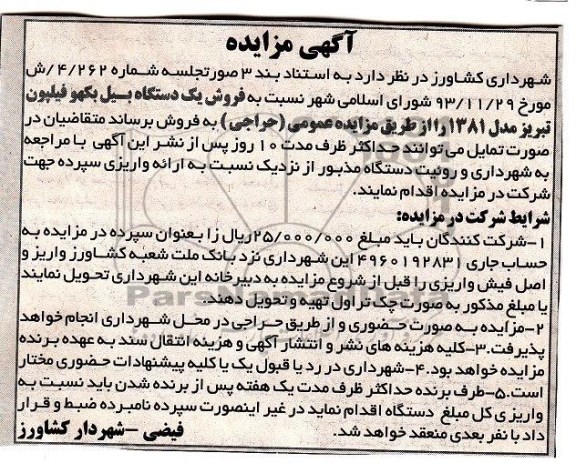 آگهی مزایده
شهرداری کشاورز در نظر دارد به استناد بند ۳ صورتجلسه شماره ۴/۲۶۲/ش
مورخ ۹۳/۱۱/۲۹ شورای اسلامی شهر نسبت به فروش یک دستگاه بیل بکهو فیلیون
تبریز مدل ۱۳۸۱ را از طریق مزایده عمومی (حراجی) به فروش برساند متقاضیان در
صورت تمایل می توانند حداکثر ظرف مدت ۱۰ روز پس از نشر این آگهی با مراجعه
به شهرداری و روئیت دستگاه مذبور از نزدیک نسبت به ارائه واریزی سپرده جهت
شرکت در مزایده اقدام نمایند.
شرایط شرکت در مزایده:
۱-شرکت کنندگان باید مبلغ ۲۵/۰۰۰/۰۰۰ریال را بعنوان سپرده در مزایده به
حساب جاری ۴۹۶۰۱۹۲۸۳۱ این شهرداری نزد بانک ملت شعبه کشاورز واریز و
اصل فیش واریزی را قبل از شروع مزایده به دبیرخانه این شهرداری تحویل نمایند
یا مبلغ مذکور به صورت چک تراول تهیه و تحویل دهند.
۲-مزایده به صورت حضوری و از طریق حراجی در محل شهرداری انجام خواهد
پذیرفت.۳-کلیه هزینه های نشر و انتشار آگهی و هزینه انتقال سند به عهده برنده
مزایده خواهد بود.۴-شهرداری در رد یا قبول یک یا کلیه پیشنهادات حضوری مختار
است.۵-طرف برنده حداکثر ظرف مدت یک هفته پس از برنده شدن باید نسبت به
واریزی کل مبلغ دستگاه اقدام نماید در غیر اینصورت سپرده نامبرده ضبط و قرار
داد با نفر بعدی منعقد خواهد شد.
فیضی -شهردار کشاورز